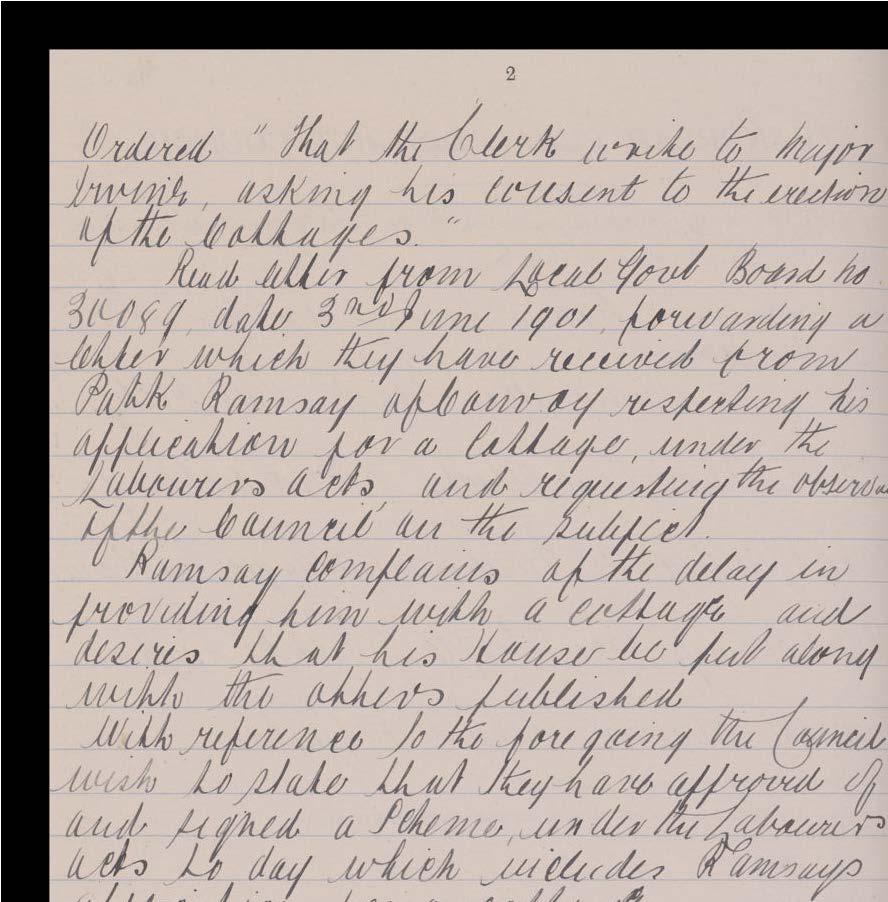 2
Ordered " That the Clerk write to Major
Irvine, asking his consent to the erection
of the Cottages."
Read letter from Local Govt Board No
30089, date 3rd June 1901, forwarding a
letter which they have received from
Patk Ramsay of Convoy respecting his
application for a Cottage, under the
Labourers acts, and requesting the observa
of the Council on the subject.
Ramsay complains of the delay in
providing him with a cottage and
desires that his House be put along
with the others published
With reference to the foregoing the Council
wish to state that they have approved of
and signed a Scheme, under the Labourers
acts to day which includes Ramsays